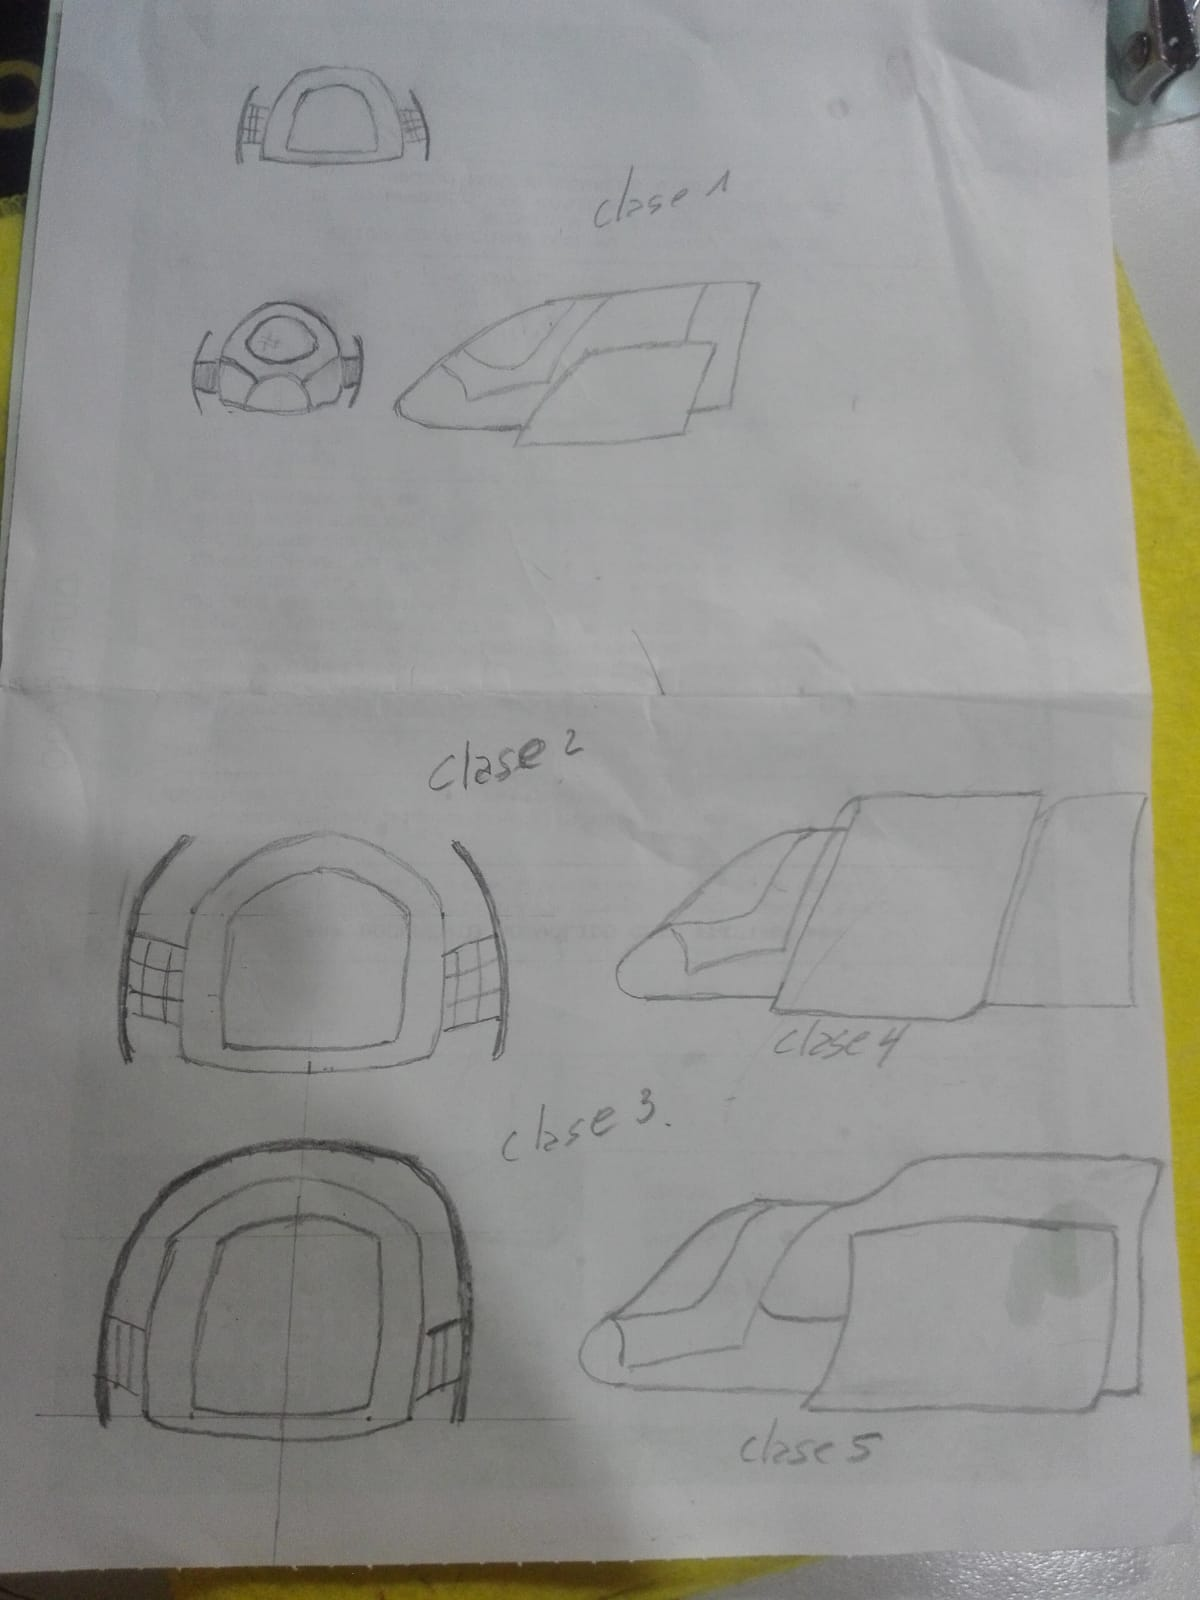 clase 1
clase 2
clase 4
clase 3.
clase 5